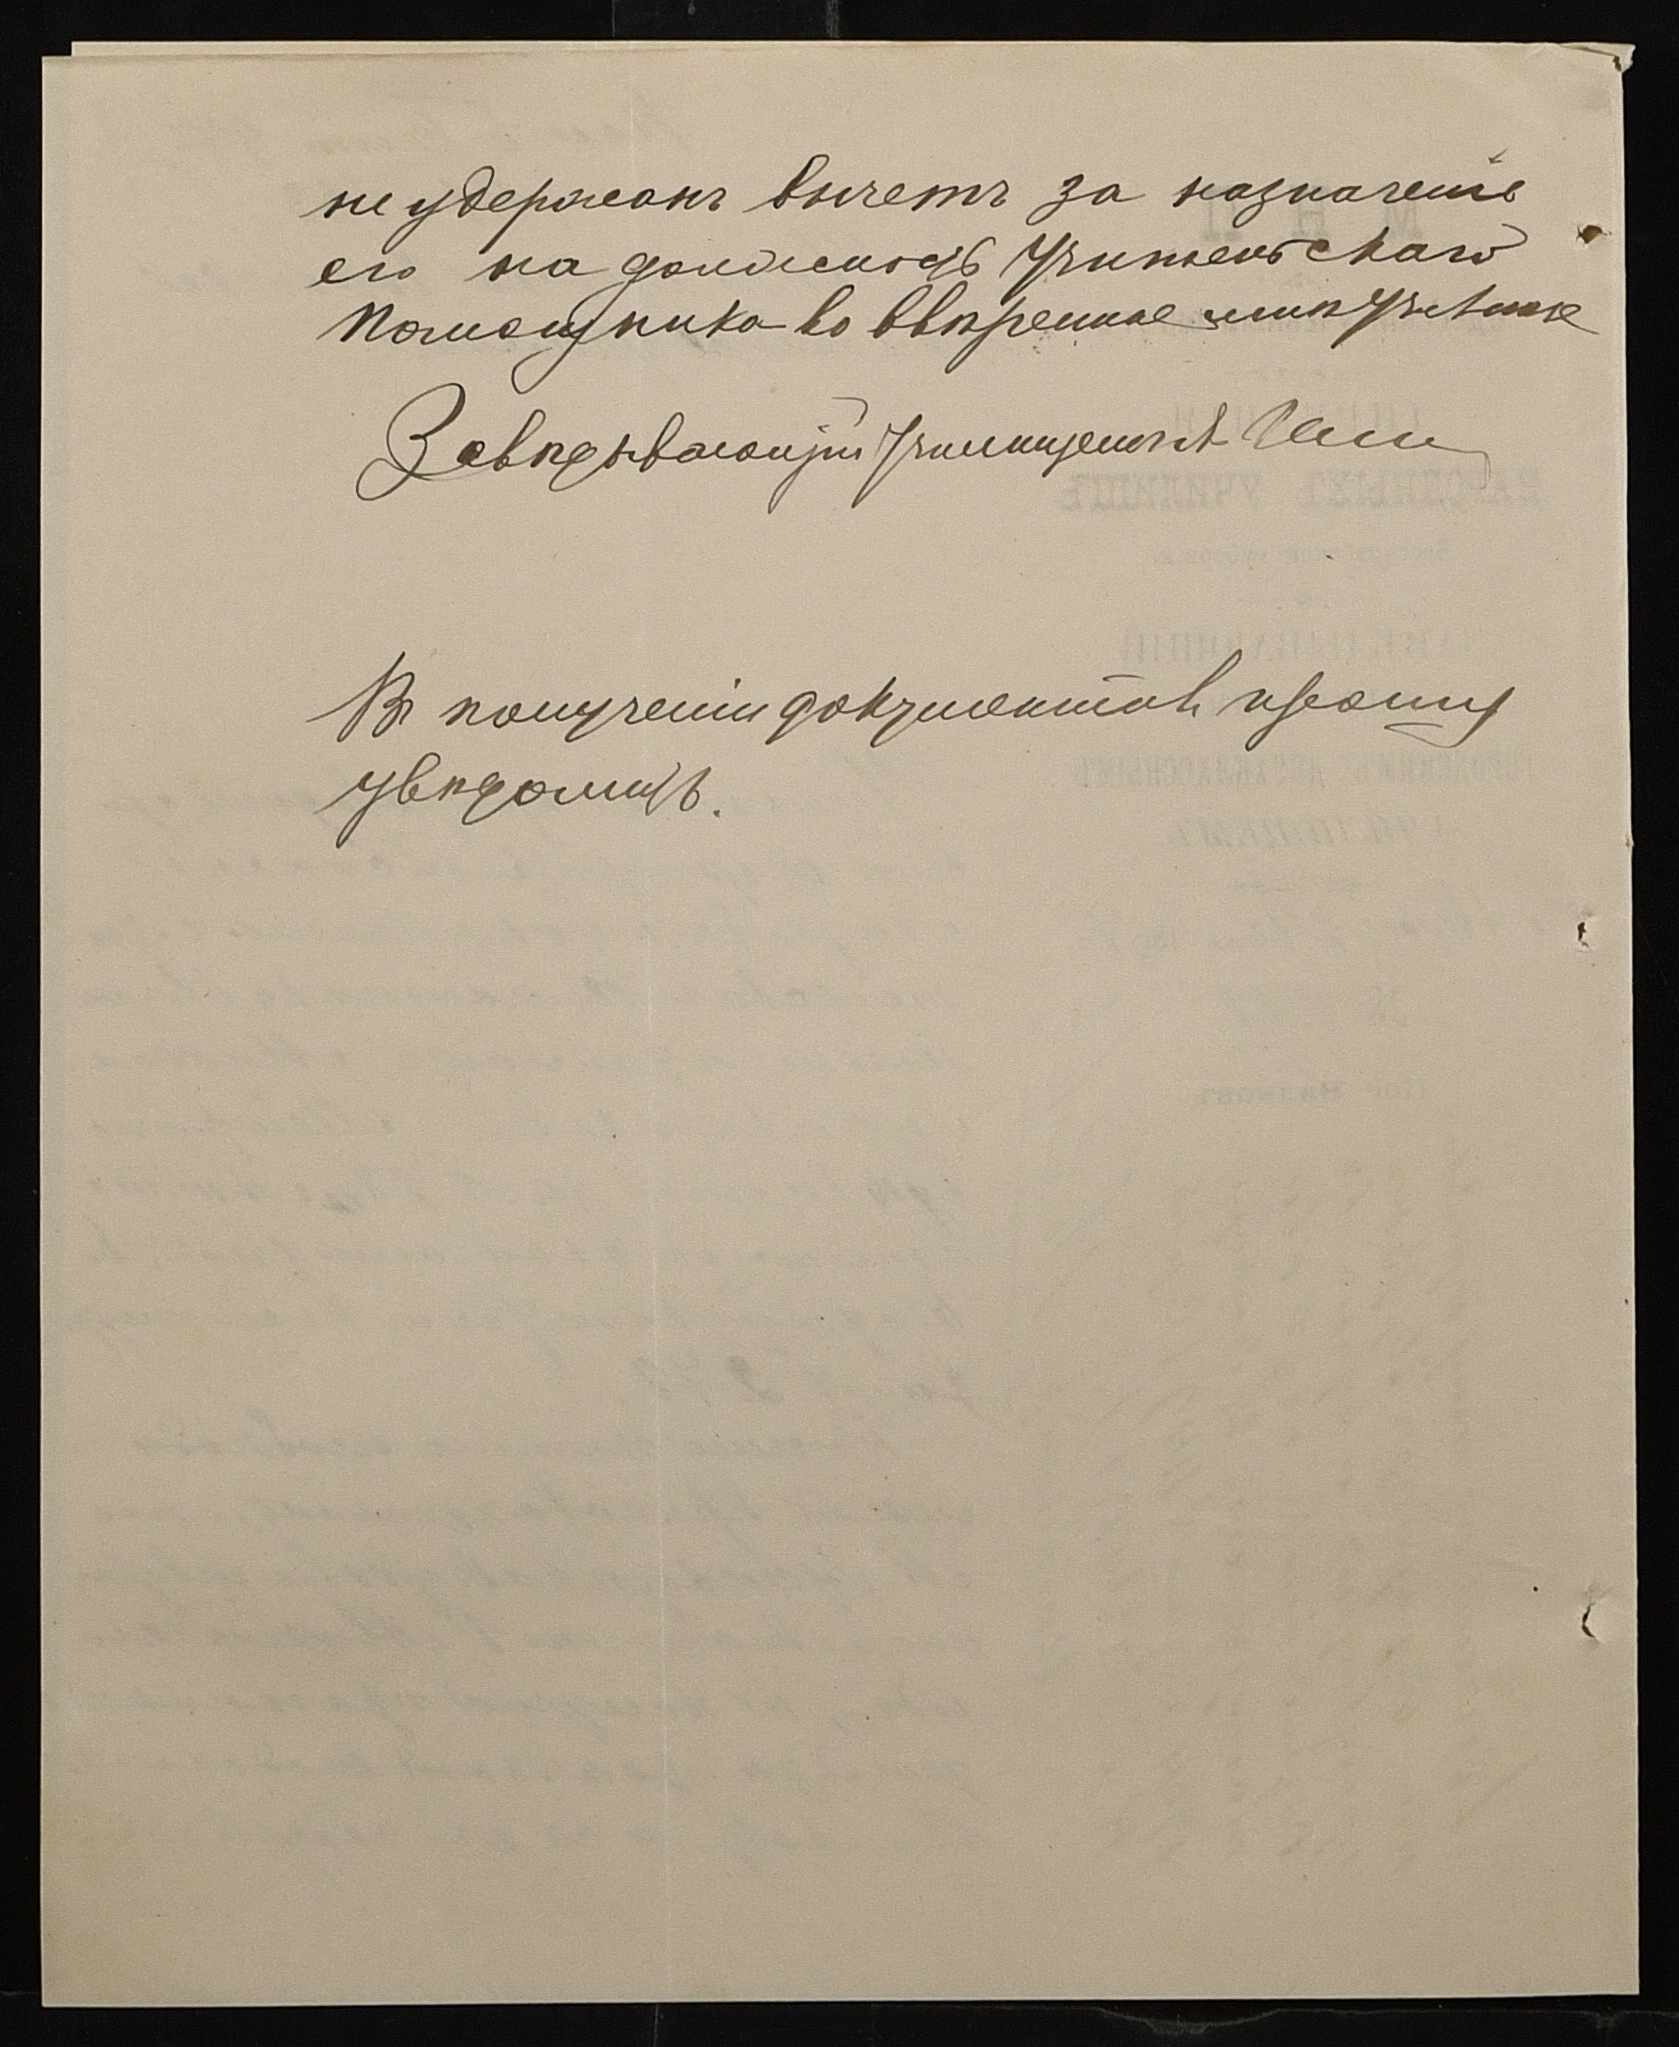 не удержанъ вычетъ за назначеніе
его на должность Учительскаго
Помощника во ввѣренное мнѣ Училище
Завѣдывающій училищемъ
Въ полученіи документовъ прошу
увѣдомить.